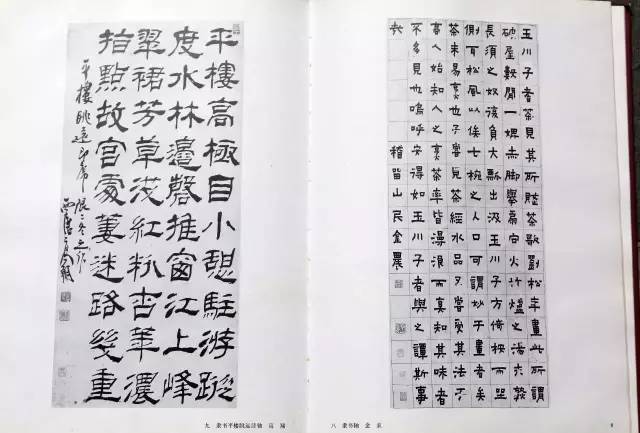 玉川子耆茶見其所賦茶歌劉松年畫此所謂
破屋數間一婢赤脚舉扇向火竹爐之湯未熟
長須之奴復負大瓢出汲玉川子方倚桉而坐
側耳松風以俟七椀之入口可謂妙于畫者矣
茶未易烹也予嘗見茶經水品又嘗受其法于
高人始知人之烹茶率皆漫浪而真知其味者
不多見也嗚呼安得如玉川子者與之譚斯事
哉 稽留山民金農
八 隶书轴 金农
平樓高極目小憩駐游蹤
度水林邊磬推窗江上峰
翠裙芳草淺紅粉杏華濃
指點故宮處萋迷路幾重
平樓眺遠
西唐高翔
九 隶书平楼眺远诗轴 高翔